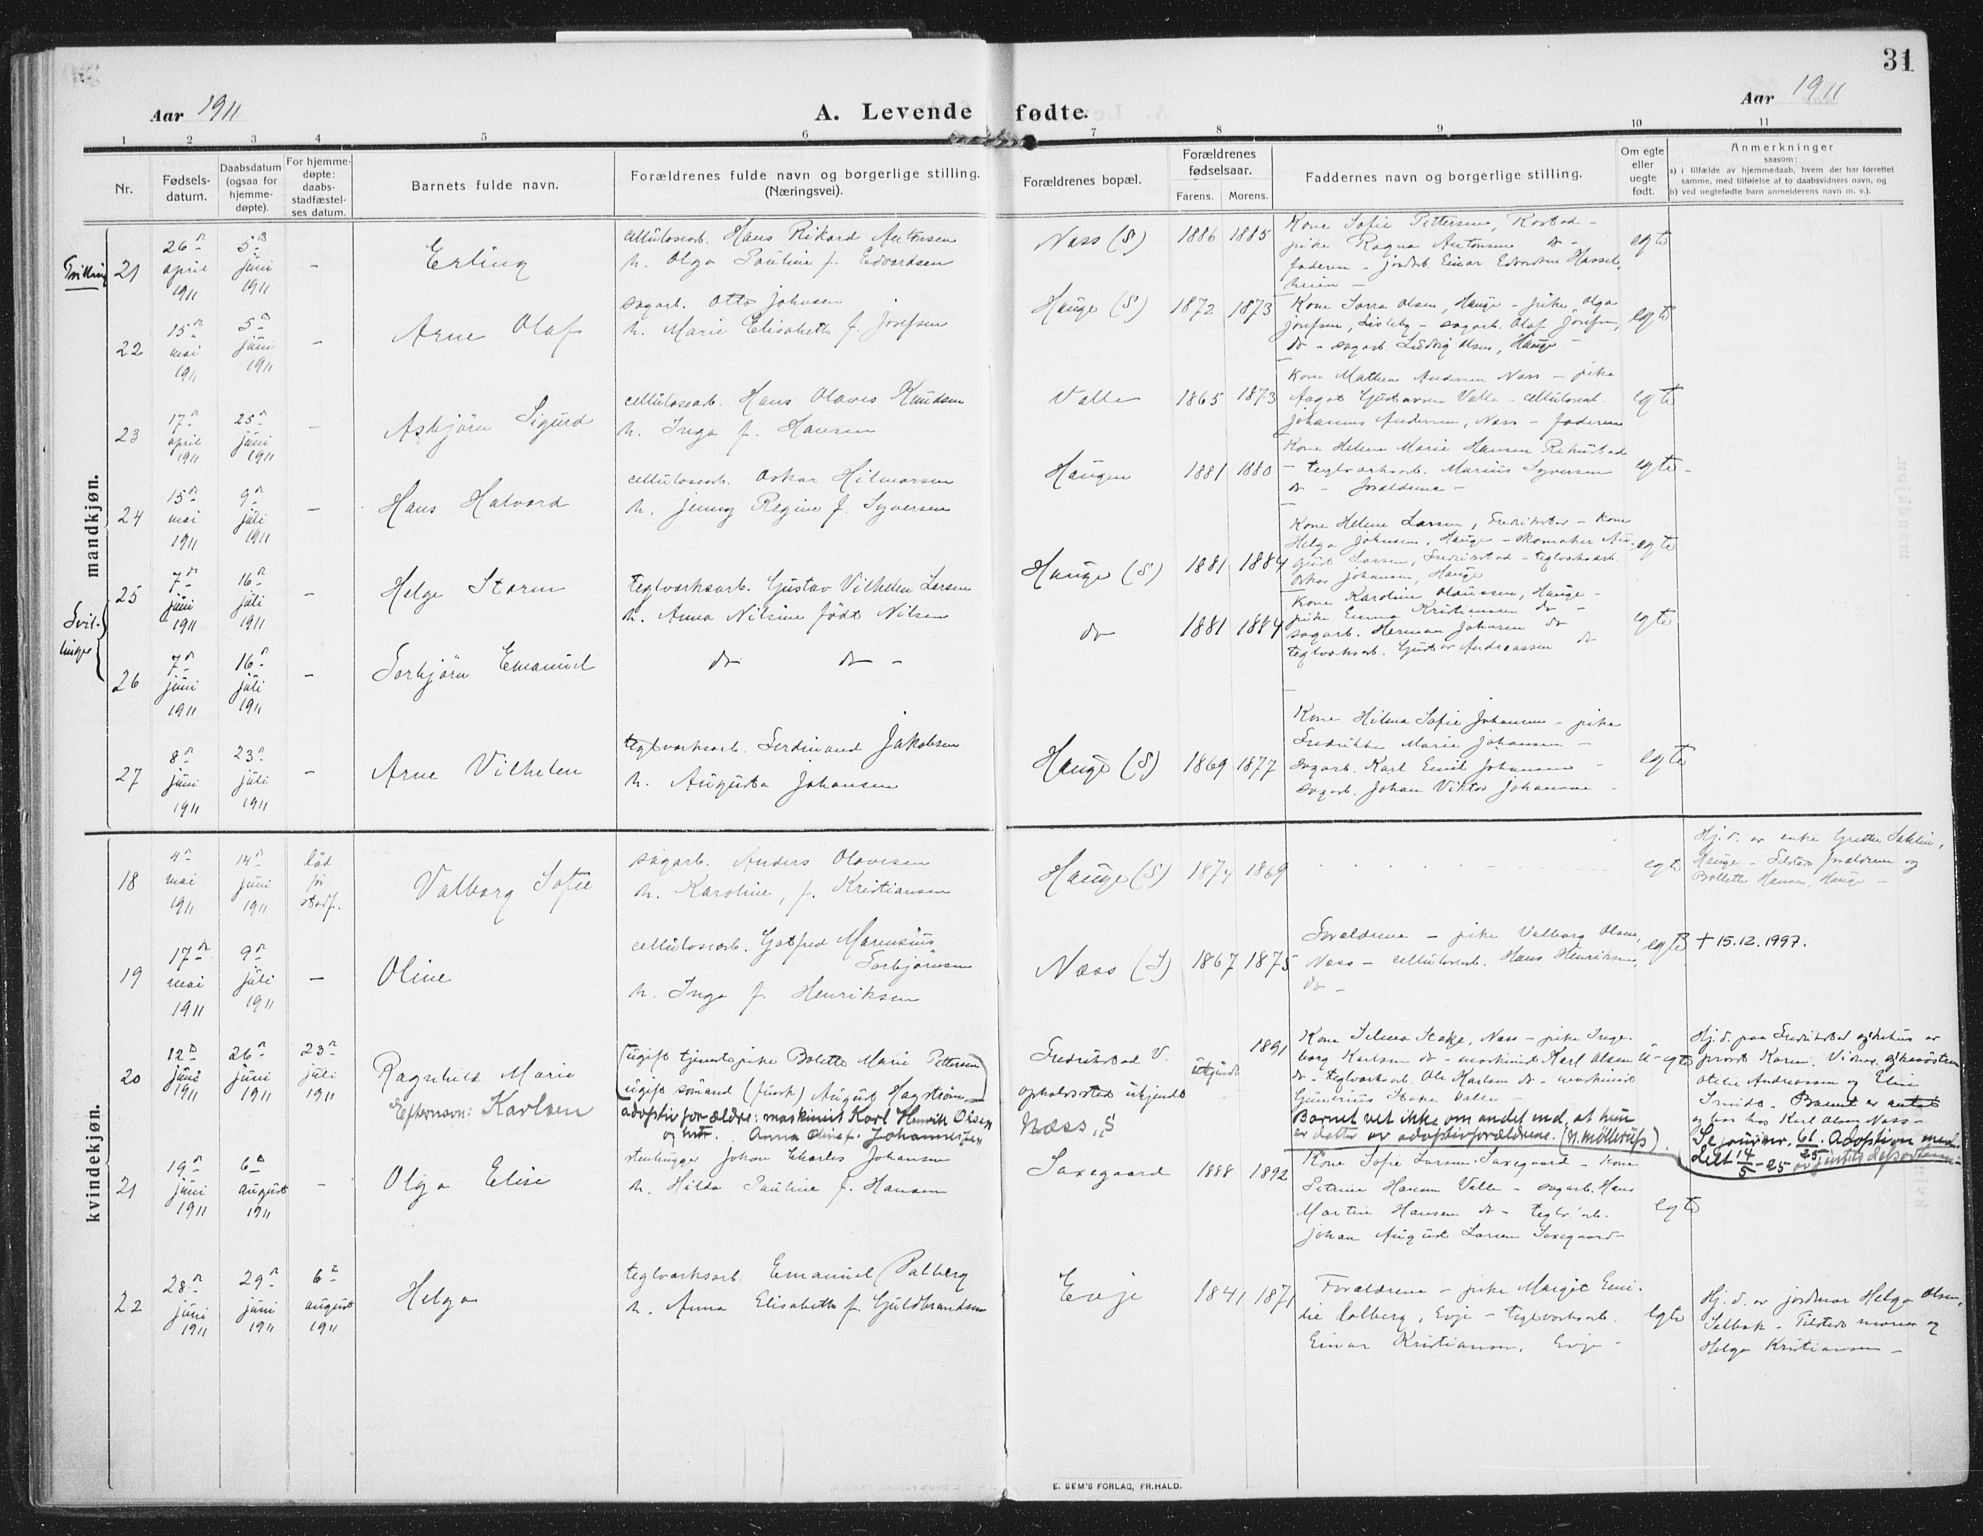 31
Aar 1911
A. Levende fødte.
Aar 1911
1 2 3 4 5 6 7 8 9 10 11
Nr.
Fødsels-
datum.
Daabsdatum
(ogsaa for
hjemme-
døpte).
For hjemme-
døpte:
daabs-
stadfæstel-
ses datum.
Barnets fulde navn.
Forældrenes fulde navn og borgerlige stilling.
(Næringsvei).
Forældrenes bopæl.
Forældrenes
fødselsaar.
Farens. Morens.
Faddernes navn og borgerlige stilling.
Om egte
eller
uegte
født.
Anmerkninger
saasom:
a) i tilfælde av hjemmedaab, hvem der har forrettet
samme, med tilføielse af to daabsvidners navn, og
b) ved uegtefødte barn anmelderens navn m. v.).
mandkjøn.
Tvilling
21
26de april 1911
5te juni 1911
-
Erling
cellulosearb. Hans Rikard Antonsen
h. Olga Pauline f. Edvardsen
Næss (S)
1886 1885
Kone Sofie Pettersen,
pike Ragna Antonsen do -
faderen - jordb. Einar Edvardsen Hassel-
heien -
egte
22
15de mai 1911
5te juni 1911
-
Arne Olaf
sagarb. Otto Johnsen
h. Marie Elisabeth f. Josefsen
Hauge (S)
1872 1873
Kone Olsen, Hauge - pike Olga
Josefsen, Lisleby - sagarb. Olaf Josefsen,
do - sagarb. Ludvig Olsen, Hauge -
egte
23
17de april 1911
25de juni 1911
-
Asbjörn Sigurd
cellulosearb. Hans Olaves Knudsen
h. Inga f. Hansen
Valle
1865 1873
Kone Mathea Andersen Næss - pike
Aagot Gustavsen Valle - cellulosearb.
Johannes Andersen, Næss - faderen
egte
24
15de mai 1911
9de juli 1911
-
Hans Halvard
cellulosearb. Oskar Hilmarsen
h. Jenny Regine f. Syversen
Haugen
1881 1880
Kone Helene Marie Hansen
- teglverksarb. Marius Syversen
do - forældrene -
egte -
Tvil-
linger
25
7de juni 1911
16de juli 1911
-
Helge Storm
teglverksarb. Gustav Vilhelm Larsen
h. Anna Nilsine født Nilsen
Hauge (S)
1881 1884
Kone Helene Larsen, Fredrikstad - kone
Helga Johansen, Hauge - skomaker Au-
gust Larsen, Fredrikstad - teglverksarb.
Oskar Johansen, Hauge
egte
26
7de juni 1911
16de juli 1911
-
Torbjörn Emanuel
do do -
do
1881 1884
Kone Karoline Olaussen, Hauge -
pike Emma Kristiansen do -
sagarb. Herman Johansen do
teglverksarb. Gustav Andreassen do
egte
27
8de juni 1911
23de juli 1911
-
Arne Vilhelm
teglverksarb. Ferdinand Jakobsen
h. Augusta Johansen
Hauge (S)
1869 1877
Kone Hilma Sofie Johansen - pike
Fredrikke Marie Johansen -
sagarb. Karl Emil Johansen -
sagarb. Johan Viktor Johansen -
egte
kvindekjøn.
18
4de mai 1911
14de juni 1911
død før stadf.
Valborg Sofie
sagarb. Anders Olavesen
h. Karoline, f. Kristiansen
Hauge (S)
1874 1869
egte
Hj. d. av enke Grethe Sahlin,
Hauge - Tilstede forældrene og
Bollette Hansen, Hauge -
19
17de mai 1911
9de juli 1911
-
Oline
cellulosearb. Gotfred Marensius
Torbjörnsen
h. Inga f. Henriksen
Næss (S)
1867 1875
Forældrene - pike Valborg Olsen,
Næss - cellulosearb. Hans Henriksen,
do -
egte
+ 15.12.1997.
20
12te juni 1911
26de juni 1911
23de juli 1911
Ragnhild Marie
Efternavn: Karlsen
(ugift tjenestepike Bolette Marie Pettersen
ugift sömand (finsk) August Hagström)
adoptivforældre: maskinist Karl Henrik Olsen
og htr. Anna Oline f. Johannesen
Fredrikstad V.
opholdssted ukjendt
Næss, S
ukjendt 1891
Kone Selma Stokge, Næss - pike Inge-
borg Karlsen do - maskinist Karl Olsen
do - teglverksarb. Ole Karlsen do - maskinist
Gunerius Valle -
Barnet vet ikke om andet end, at hun
er datter av adoptivforældrene. (N. Møllerup).
u-egte
Hj. d. paa Fredrikstad sykehus av
provst Koren. Vidner
Otelie Andreassen og Elin
Smidt. - Barnet er antat
og bor hos Karl Olsen Næss -
Se journr. 61/25. Adoption med-
delt 14/5-25 av Justitsdepartem.
21
19de juni 1911
6te august 1911
-
Olga Elise
stenhugger Johan Charles Johansen
h. Hilda Pauline f. Hansen
Saxegaard
1888 1892
Kone Sofie Larsen, Saxegaard - kone
Petrine Hansen Valle - sagarb. Hans
Martin Hansen do - teglv. arb.
Johan August Larsen Saxegaard -
egte
22
28de juni 1911
29de juni 1911
6te august 1911
Helga
teglverksarb. Emanuel Dalberg
h. Anna Elisabeth f. Guldbrandsen
Evje
1841 1871
Forældrene - pike Margit Emi-
lie Dalberg, Evje - teglverksarb.
Einar Kristiansen, Evje -
egte
Hj. d. av jordmor Helga Olsen,
Selbak - Tilstede moren og
Helga Kristiansen -
E. SEM'S FORLAG, FR.HALD.